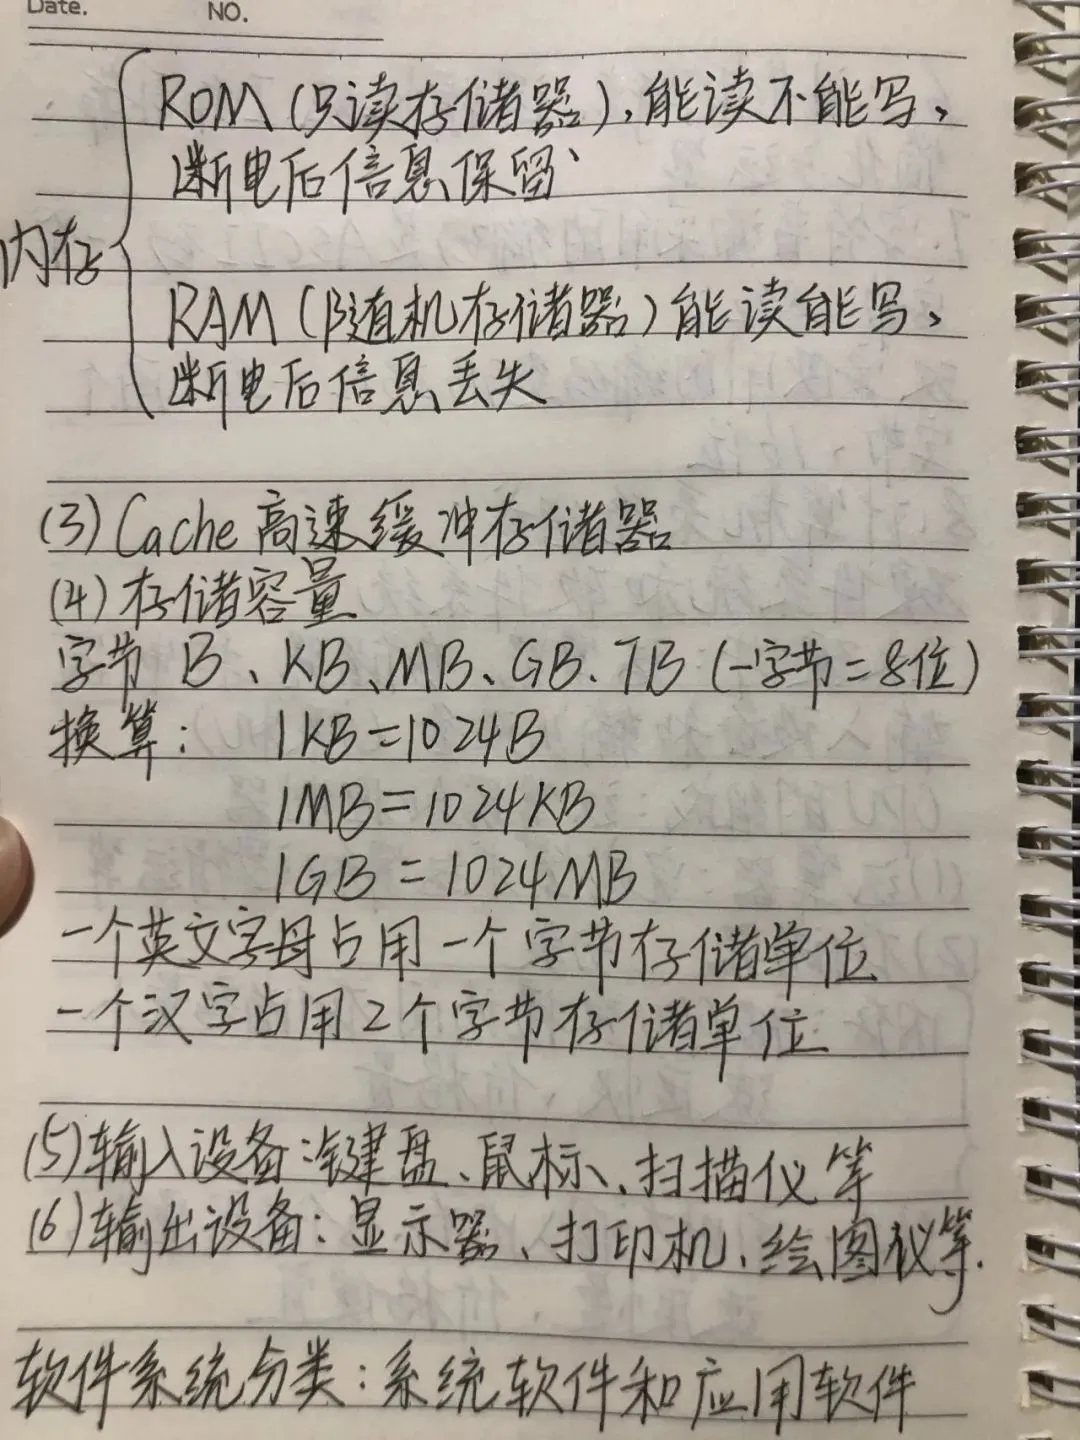 Date.
NO.
ROM(只读存储器),能读不能写、
断电后信息保留、
内存
RAM(随机存储器)能读能写、
断电后信息丢失
(3)Cache高速缓冲存储器
(4)存储容量
字节 B、KB、MB、GB.TB(一字节=8位)
换算: 1KB=1024B
1MB=1024KB
1GB=1024MB
一个英文字母占用一个字节存储单位
一个汉字占用2个字节存储单位
(5)输入设备:键盘、鼠标、扫描仪等
(6)输出设备:显示器、打印机、绘图仪等.
软件系统分类:系统软件和应用软件